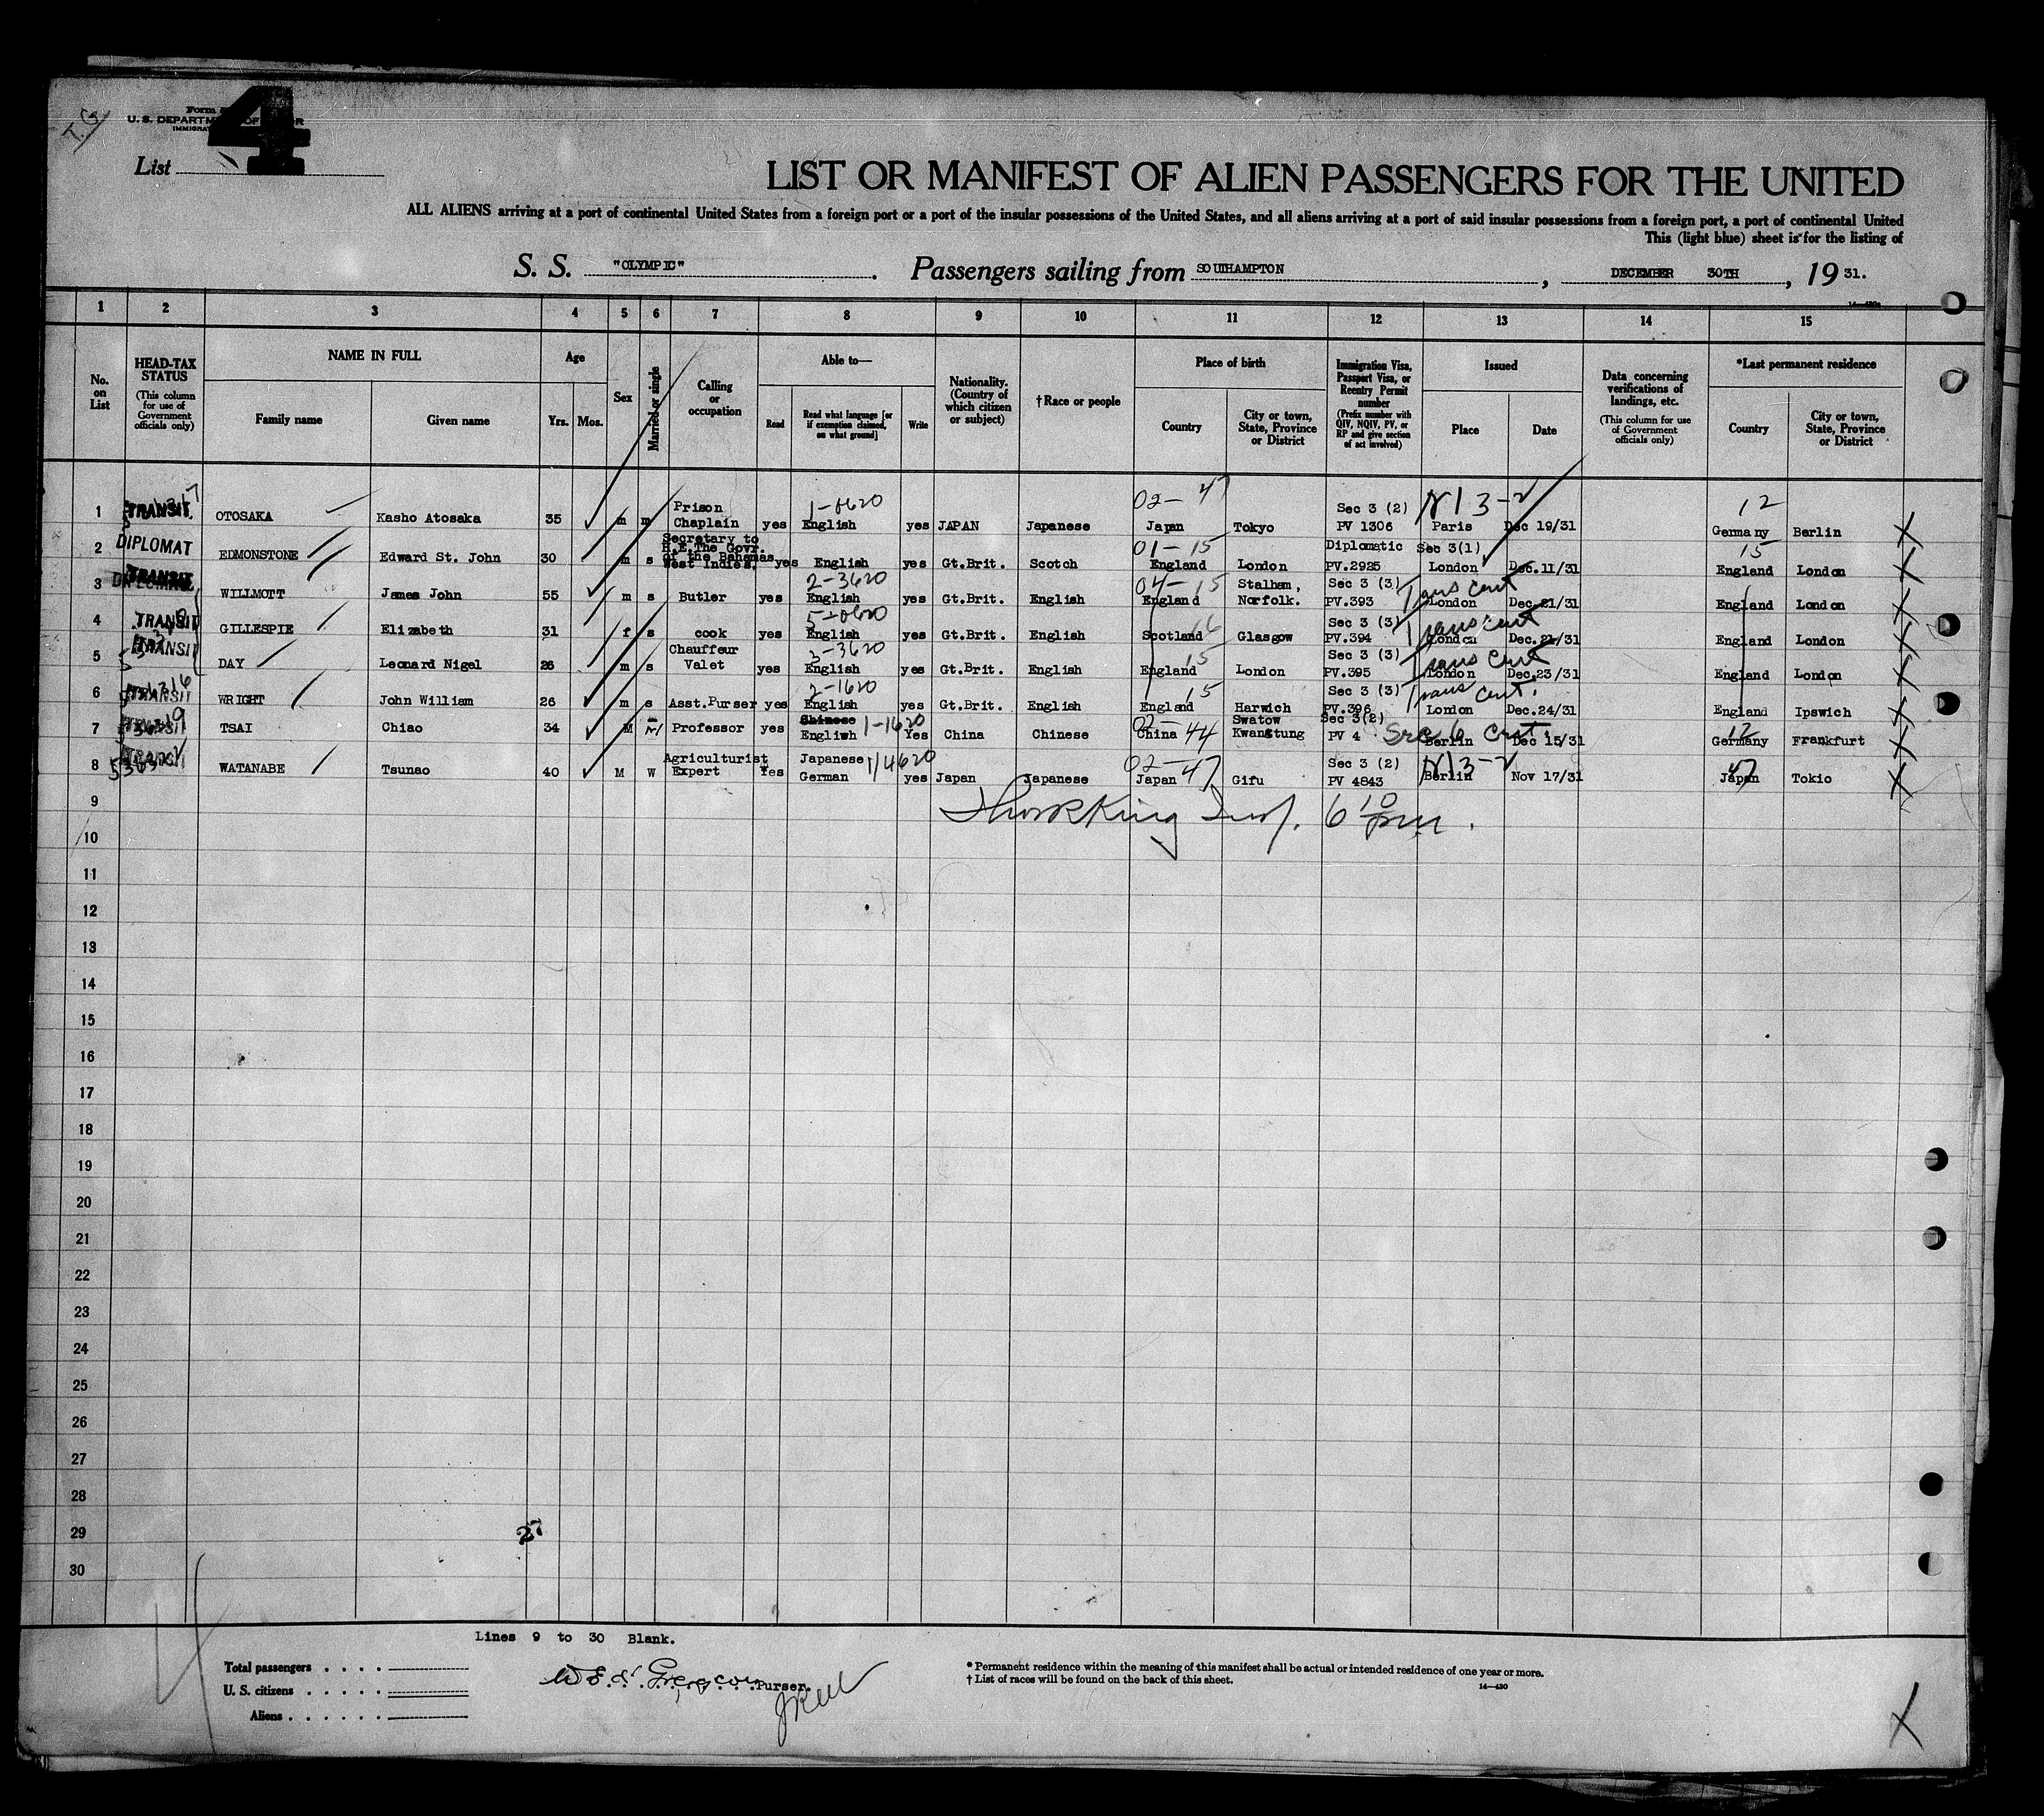 T.G
Form
U. S. DEPARTM
IMMIGRAT
4
List
LIST OR MANIFEST OF ALIEN PASSENGERS FOR THE UNITED
ALL ALIENS arriving at a port of continental United States from a foreign port or a port of the insular possessions of the United States, and all aliens arriving at a port of said insular possessions from a foreign port, a port of continental United
This (light blue) sheet is for the listing of
S. S. "OLYMPIC". Passengers sailing from SOUTHAMPTON, DECEMBER 30TH, 19 31.
1 2 3 4 5 6 7 8 9 10 11 12 13 14 15
No. on List
HEAD-TAX STATUS (This column for use of Government officials only)
NAME IN FULL Family name Given name
Age Yrs. Mos.
Sex
Married or single
Calling or occupation
Able to— Read Read what language [or if exemption claimed, on what ground] Write
Nationality. (Country of which citizen or subject)
†Race or people
Place of birth Country City or town, State, Province or District
Immigration Visa, Passport Visa, or Reentry Permit number (Prefix number with QIV, NQIV, PV, or RP and give section of act involved)
Issued Place Date
Data concerning verifications of landings, etc. (This column for use of Government officials only)
*Last permanent residence Country City or town, State, Province or District
1 TRANSIT OTOSAKA Kasho Atosaka 35 m m Prison Chaplain yes 1-0620 English yes JAPAN Japanese 02-47 Japan Tokyo Sec 3 (2) PV 1306 Paris Dec 19/31 12 Germany Berlin X
2 DIPLOMAT EDMONSTONE Edward St. John 30 m s Secretary to H.E.The Govr. of the Bahamas West Indies. yes English yes Gt.Brit. Scotch 01-15 England London Diplomatic Sec 3(1) PV.2925 London Dec.11/31 15 England London X
3 TRANSIT WILLMOTT James John 55 m s Butler yes 2-3620 English yes Gt.Brit. English 04-15 England Stalham, Norfolk. Sec 3 (3) PV.393 Trans cert London Dec.21/31 England London X
4 TRANSIT GILLESPIE Elizabeth 31 f s cook yes 5-0620 English yes Gt.Brit. English Scotland 16 Glasgow Sec 3 (3) PV.394 Trans cert London Dec.21/31 England London X
5 TRANSIT DAY Leonard Nigel 26 m s Chauffeur Valet yes 3-3620 English yes Gt.Brit. English 15 England London Sec 3 (3) PV.395 Trans Cert London Dec.23/31 England London X
6 TRANSIT WRIGHT John William 26 m s Asst.Purser yes 2-1620 English yes Gt.Brit. English 15 England Harwich Sec 3 (3) PV.396 Trans cert. London Dec.24/31 England Ipswich X
7 TRANSIT TSAI Chiao 34 M Professor yes Chinese 1-1620 Engliwh Yes China Chinese 02-44 China Swatow Kwangtung Sec 3(2) PV 4 Sec 6 Cert. Berlin Dec 15/31 12 Germany Frankfurt X
8 TRANSIT WATANABE Tsunao 40 M W Agriculturist Expert Yes Japanese German 1/4620 yes Japan Japanese 02-47 Japan Gifu Sec 3 (2) PV 4843 Berlin Nov 17/31 47 Japan Tokio X
9
10
11
12
13
14
15
16
17
18
19
20
21
22
23
24
25
26
27
28
29 27
30
Lines 9 to 30 Blank.
Total passengers
U. S. citizens
Aliens
Purser.
* Permanent residence within the meaning of this manifest shall be actual or intended residence of one year or more.
† List of races will be found on the back of this sheet.
14—430
X